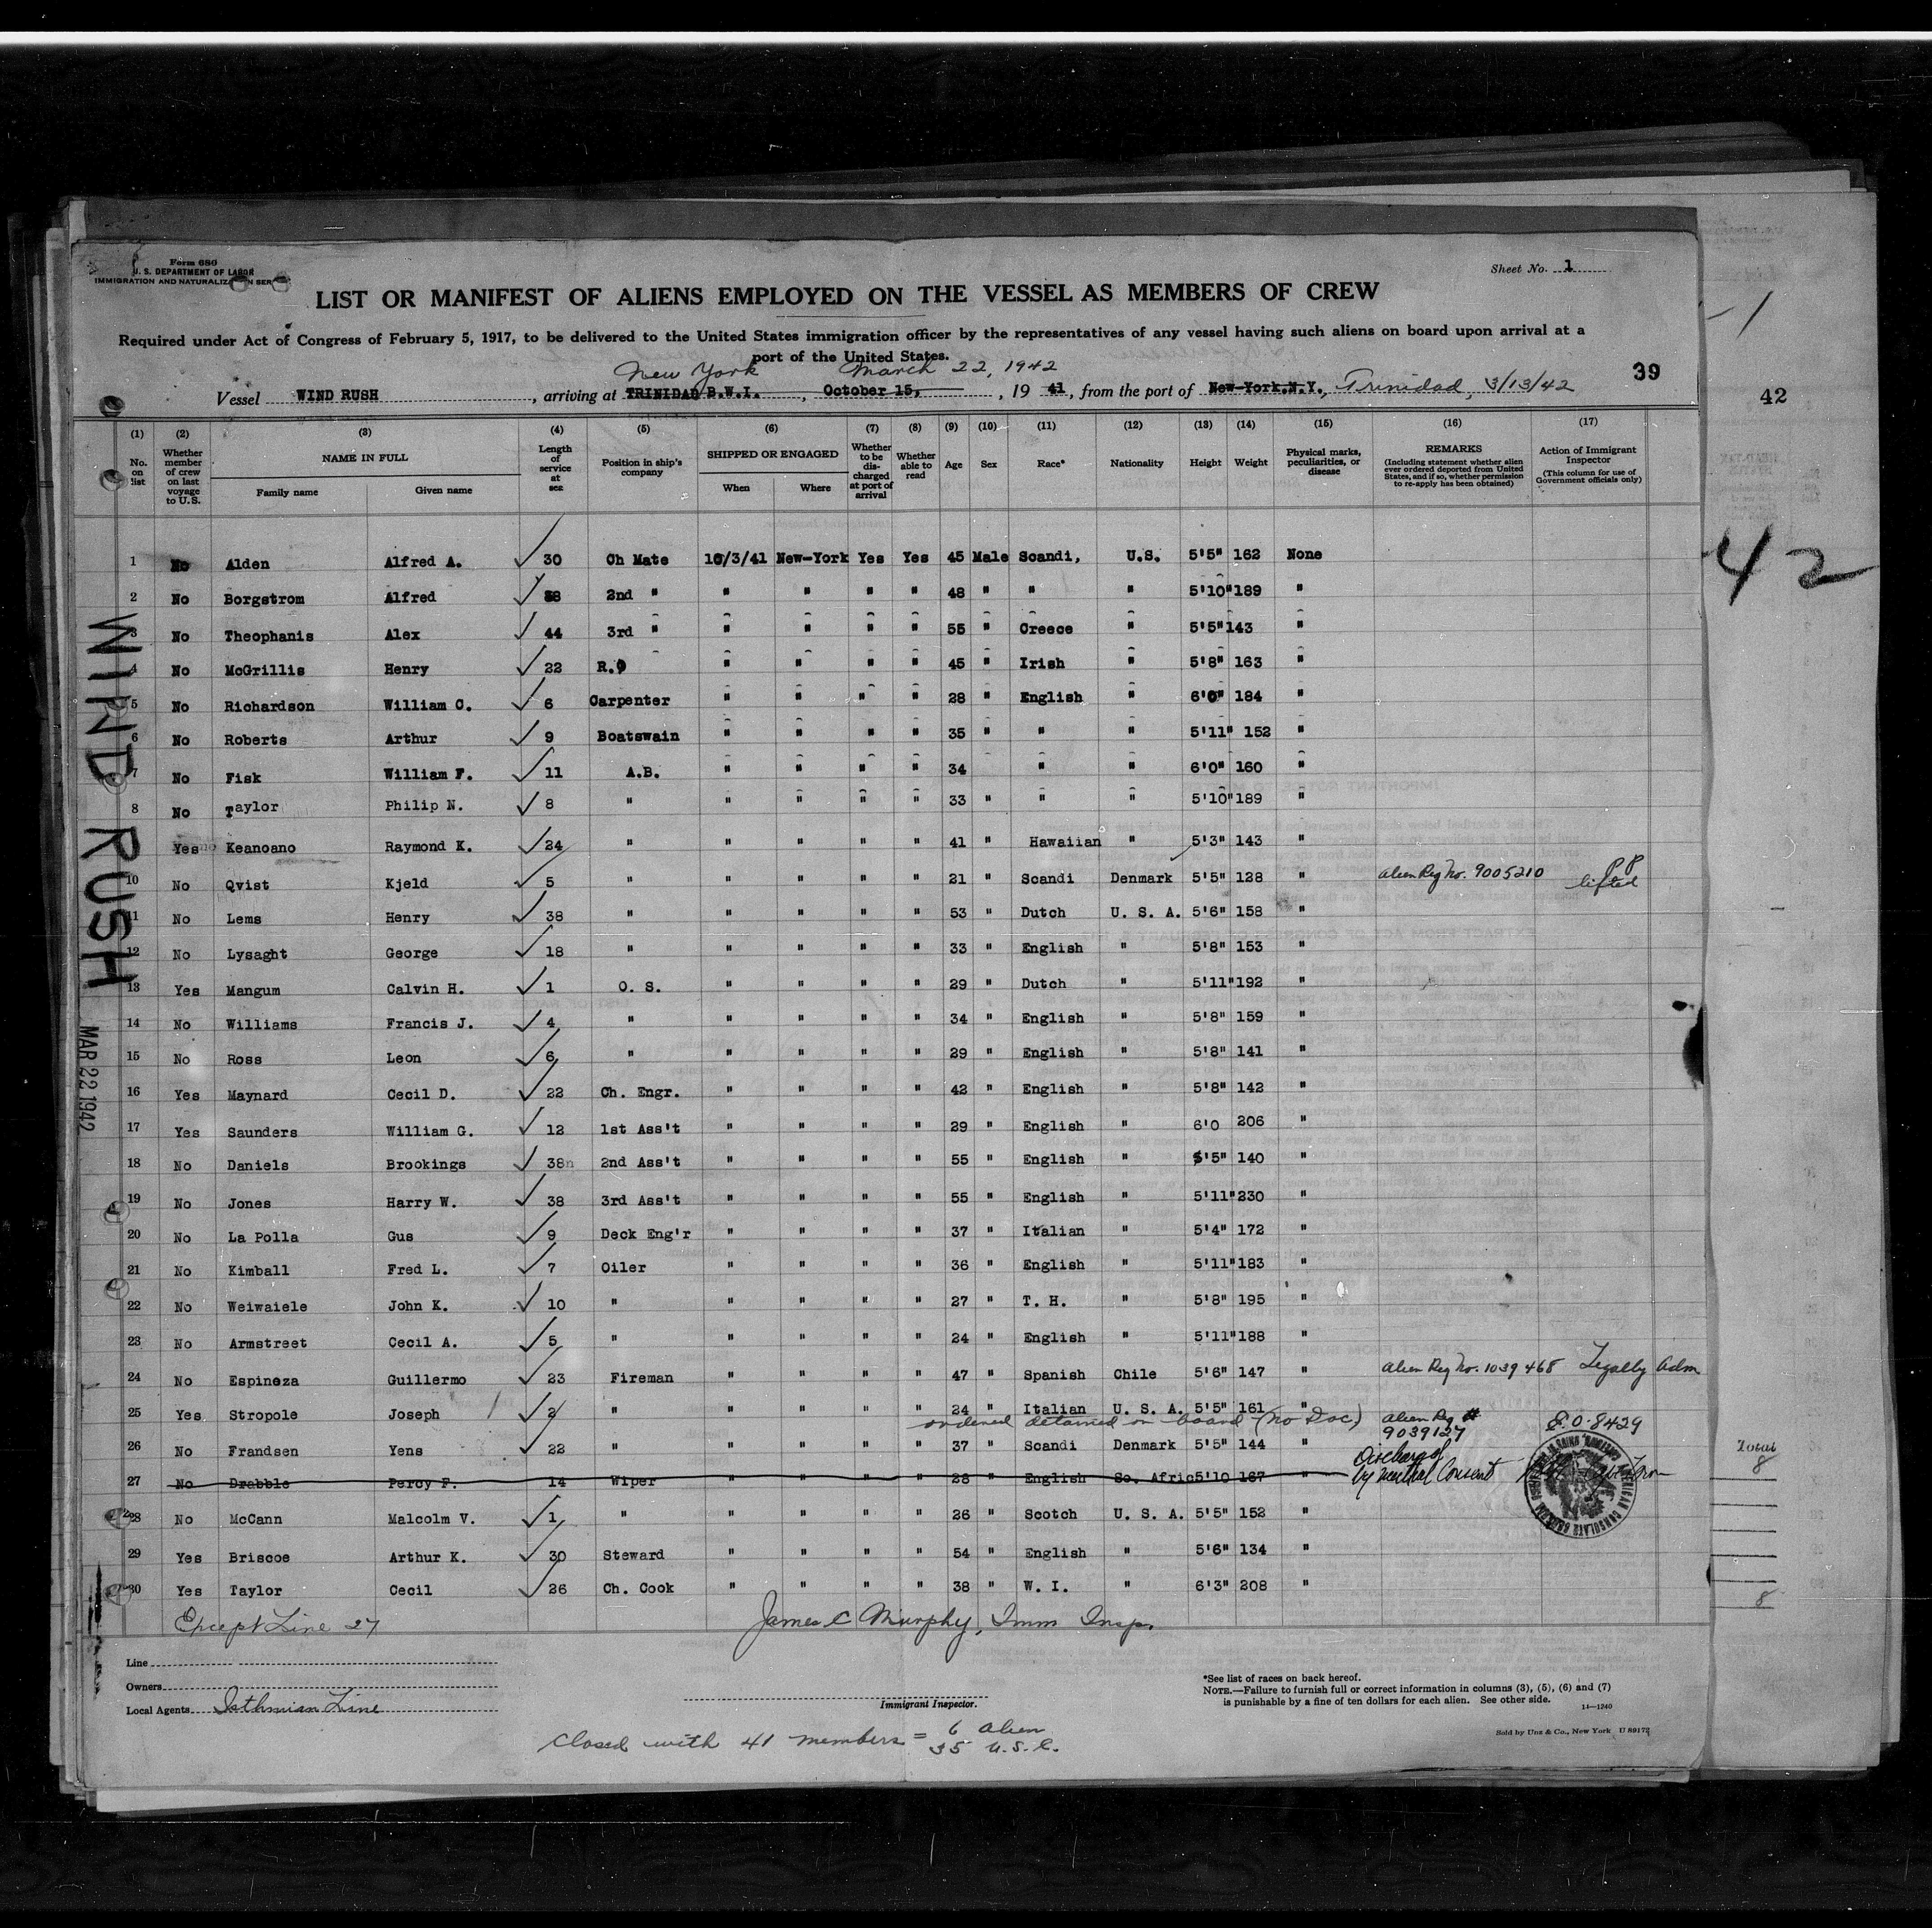 Form 680
U. S. DEPARTMENT OF LABOR
IMMIGRATION AND NATURALIZATION SER
Sheet No. 1
LIST OR MANIFEST OF ALIENS EMPLOYED ON THE VESSEL AS MEMBERS OF CREW
Required under Act of Congress of February 5, 1917, to be delivered to the United States immigration officer by the representatives of any vessel having such aliens on board upon arrival at a
port of the United States.
New York March 22, 1942
39
Vessel WIND RUSH, arriving at TRINIDAD B.W.I., October 15, 1941, from the port of New-York.N.Y., Trinidad, 3/13/42
42
(1) (2) (3) (4) (5) (6) (7) (8) (9) (10) (11) (12) (13) (14) (15) (16) (17)
No. on list
Whether member of crew on last voyage to U.S.
NAME IN FULL
Family name Given name
Length of service at sea
Position in ship's company
SHIPPED OR ENGAGED
When Where
Whether to be discharged at port of arrival
Whether able to read
Age
Sex
Race*
Nationality
Height
Weight
Physical marks, peculiarities, or disease
REMARKS
(Including statement whether alien ever ordered deported from United States, and if so, whether permission to re-apply has been obtained)
Action of Immigrant Inspector
(This column for use of Government officials only)
42
1 No Alden Alfred A. ✓ 30 Ch Mate 10/3/41 New-York Yes Yes 45 Male Scandi, U.S. 5'5" 162 None
2 No Borgstrom Alfred ✓ 38 2nd " " " " " 48 " " " 5'10" 189 "
3 No Theophanis Alex ✓ 44 3rd " " " " " 55 " Creece " 5'5" 143 "
4 No McGrillis Henry ✓ 22 R.O " " " " 45 " Irish " 5'8" 163 "
5 No Richardson William C. ✓ 6 Carpenter " " " " 28 " English " 6'0" 184 "
6 No Roberts Arthur ✓ 9 Boatswain " " " " 35 " " " 5'11" 152 "
7 No Fisk William F. ✓ 11 A.B. " " " " 34 " " 6'0" 160 "
8 No Taylor Philip N. ✓ 8 " " " " " 33 " " " 5'10" 189 "
Yes Keanoano Raymond K. ✓ 24 " " " " " 41 " Hawaiian " 5'3" 143 "
10 No Qvist Kjeld ✓ 5 " " " " " 21 " Scandi Denmark 5'5" 128 " alien Reg No. 9005210 PP lifted
11 No Lems Henry ✓ 38 " " " " " 53 " Dutch U. S. A. 5'6" 158 "
12 No Lysaght George ✓ 18 " " " " " 33 " English " 5'8" 153 "
13 Yes Mangum Calvin H. ✓ 1 O. S. " " " " 29 " Dutch " 5'11" 192 "
14 No Williams Francis J. ✓ 4 " " " " " 34 " English " 5'8" 159 "
15 No Ross Leon ✓ 6 " " " " " 29 " English " 5'8" 141 "
16 Yes Maynard Cecil D. ✓ 22 Ch. Engr. " " " " 42 " English " 5'8" 142 "
17 Yes Saunders William G. ✓ 12 1st Ass't " " " " 29 " English " 6'0 206 "
18 No Daniels Brookings ✓ 38n 2nd Ass't " " " " 55 " English " 5'5" 140 "
19 No Jones Harry W. ✓ 38 3rd Ass't " " " " 55 " English " 5'11" 230 "
20 No La Polla Gus ✓ 9 Deck Eng'r " " " " 37 " Italian " 5'4" 172 "
21 No Kimball Fred L. ✓ 7 Oiler " " " " 36 " English " 5'11" 183 "
22 No Weiwaiele John K. ✓ 10 " " " " " 27 " T. H. " 5'8" 195 "
23 No Armstreet Cecil A. ✓ 5 " " " " " 24 " English " 5'11" 188 "
24 No Espineza Guillermo ✓ 23 Fireman " " " " 47 " Spanish Chile 5'6" 147 " Alien Reg No. 1039468 Legally Adm
25 Yes Stropole Joseph ✓ 2 " " " " " 24 " Italian U. S. A. 5'5" 161 "
ordered detained on board (No Doc) Alien Reg # 9039127 E.O. 8429
26 No Frandsen Yens ✓ 22 " " " " " 37 " Scandi Denmark 5'5" 144 "
27 No Drabble Percy F. 14 Wiper " " " " 28 " English So. Afric 5'10 167 " Discharged by mutual Consent
28 No McCann Malcolm V. ✓ 1 " " " " " 26 " Scotch U. S. A. 5'5" 152 "
29 Yes Briscoe Arthur K. ✓ 30 Steward " " " " 54 " English " 5'6" 134 "
30 Yes Taylor Cecil ✓ 26 Ch. Cook " " " " 38 " W. I. " 6'3" 208 "
Except Line 27
James C Murphy, Imm Insp.
WIND RUSH
MAR 22 1942
Total
8
8
Line
Owners
Local Agents Isthmian Line
Immigrant Inspector.
Closed with 41 members = 6 alien
35 U.S.C.
*See list of races on back hereof.
NOTE.—Failure to furnish full or correct information in columns (3), (5), (6) and (7)
is punishable by a fine of ten dollars for each alien. See other side.
14—1240
Sold by Unz & Co., New York U 89172